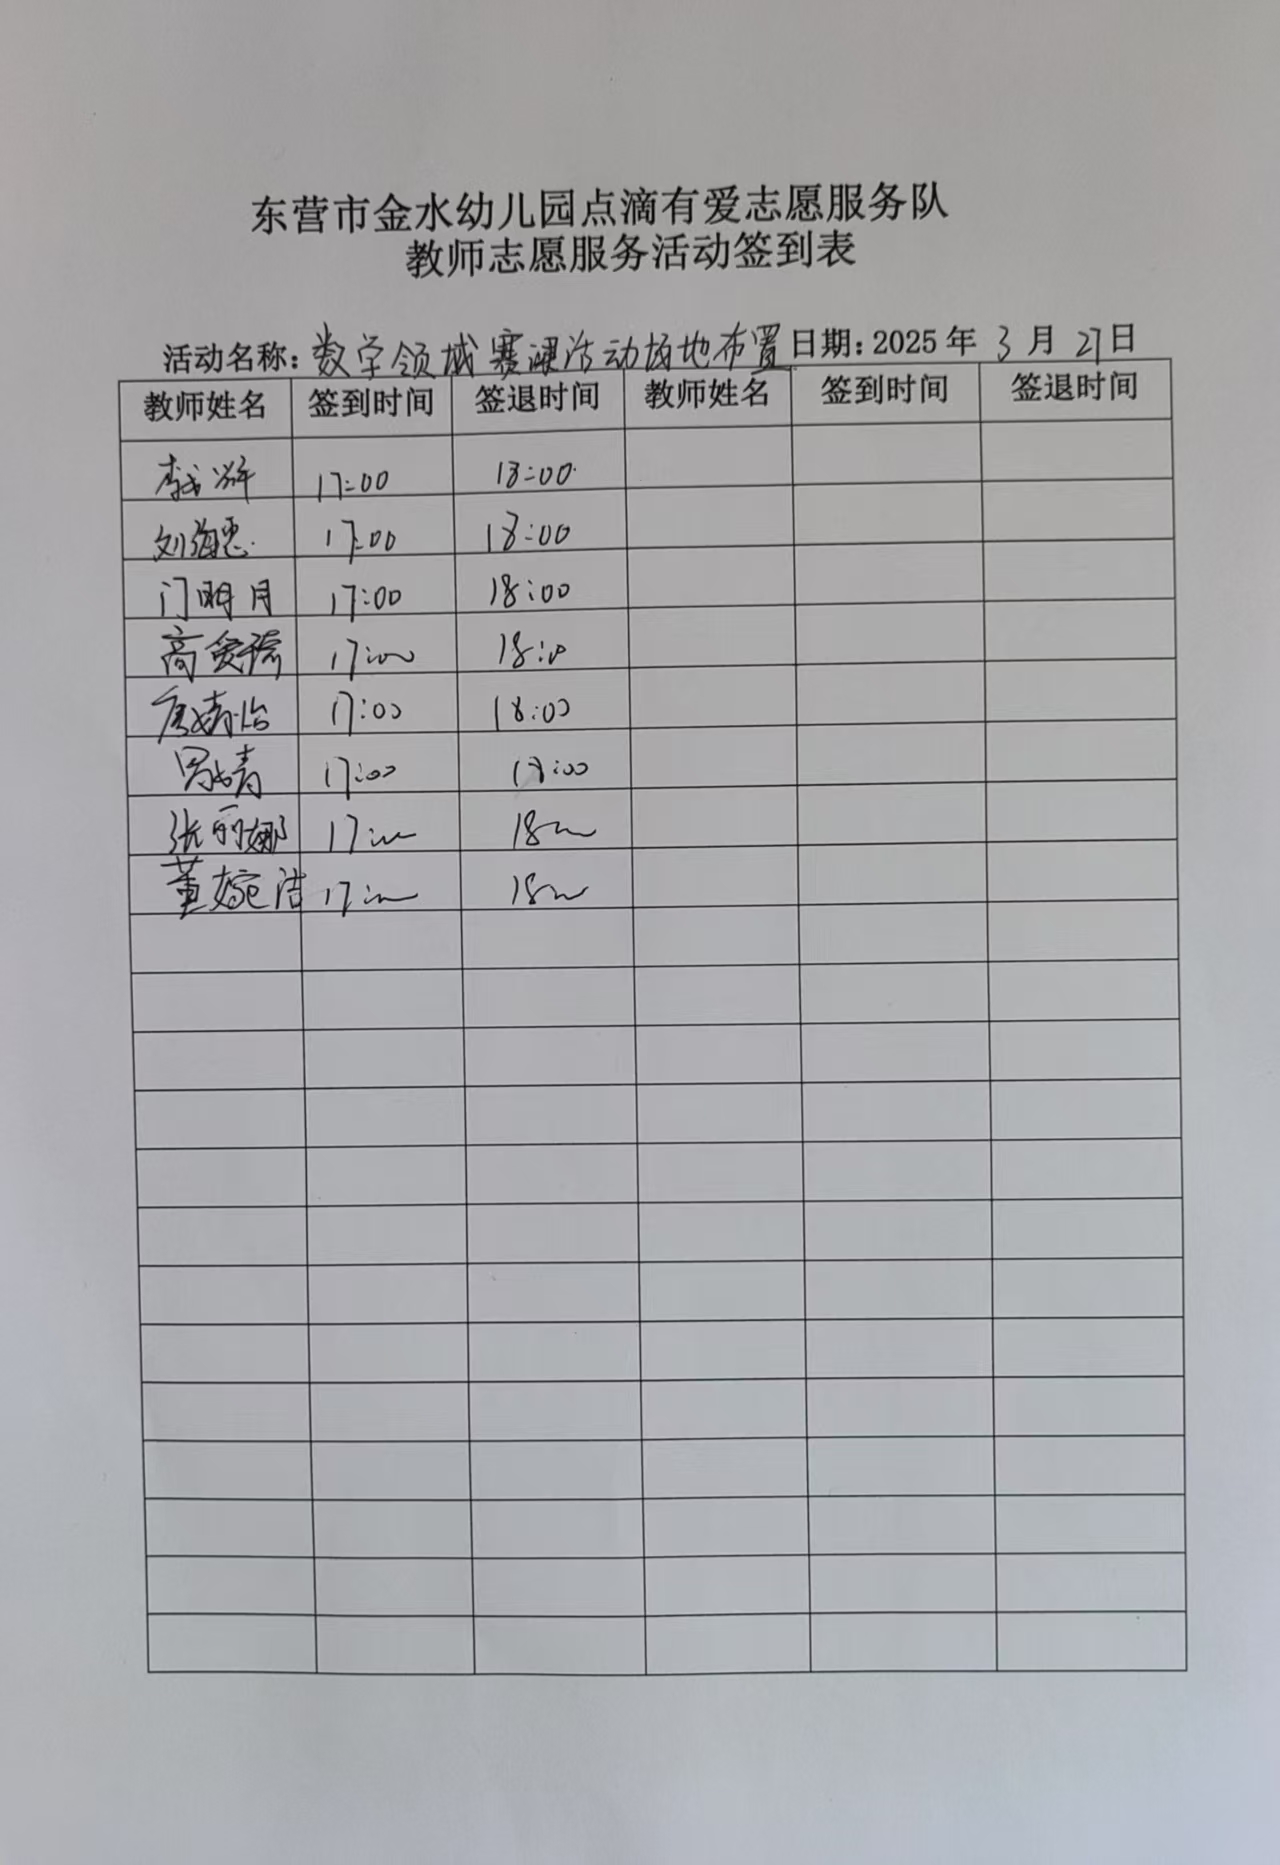 东营市金水幼儿园点滴有爱志愿服务队
教师志愿服务活动签到表
活动名称：数学领域赛课活动场地布置 日期：2025年 3月 27日
教师姓名 签到时间 签退时间 教师姓名 签到时间 签退时间
17:00 18:00
刘海惠 17:00 18:00
门明月 17:00 18:00
高 17:00 18:00
17:00 18:00
17:00 18:00
张丽娜 17:00 18:00
董婉洁 17:00 18:00